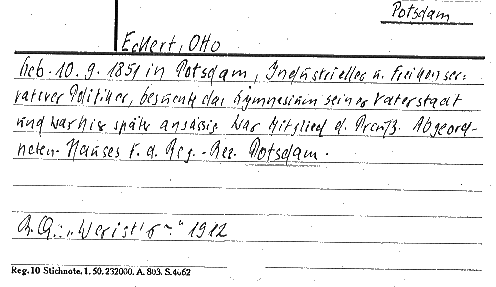 Potsdam
Eckert, Otto
Geb. 10. 9. 1851 in Potsdam, Industrieller u. freikonser-
vativer Politiker, besuchte das Gymnasium seiner Vaterstadt
und war hier später ansässig. War Mitglied d. Preuß. Abgeord-
neten-Hauses f. d. Reg.-Bez. Potsdam.
B. Q.: „Wer ist's“ 1912
Reg. 10 Stichnote. 1. 50. 232000. A. 803. S. 4062